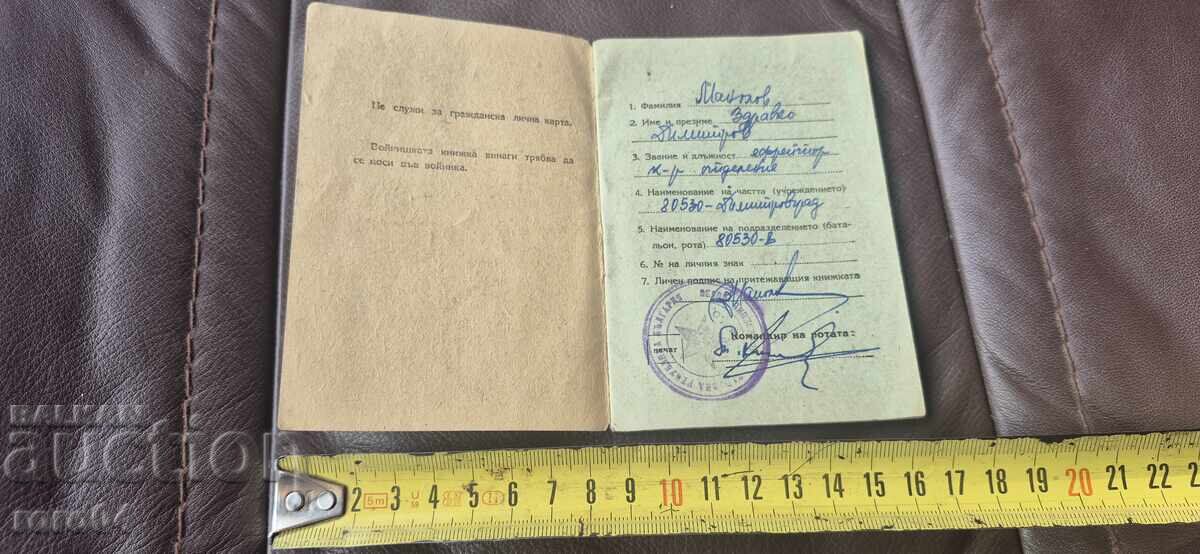 Не служи за гражданска лична карта.
Войнишката книжка винаги трябва да
се носи във войника.
1. Фамилия Манолов
2. Име и презиме Здравко
Димитров
3. Звание и длъжност ефрейтор
к-р отделение
4. Наименование на частта (учреждението)
80530-Димитровград
5. Наименование на подразделението (бата-
льон, рота) 80530-В
6. № на личния знак
7. Личен подпис на притежаващия книжката
Командир на ротата:
печат
НАРОДНА РЕПУБЛИКА БЪЛГАРИЯ
BALKAN
auction
roro64
2 5m 3 4 5 6 7 8 9 10 11 12 13 14 15 16 17 18 19 20 21 22 23